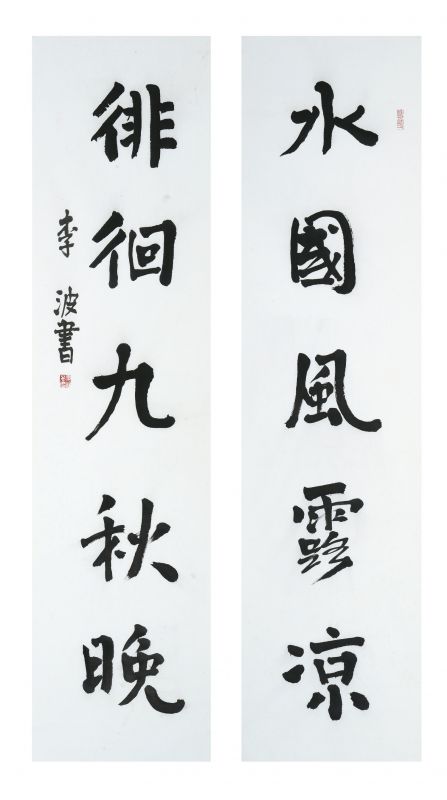 水國風露凉
徘徊九秋晚
李波書